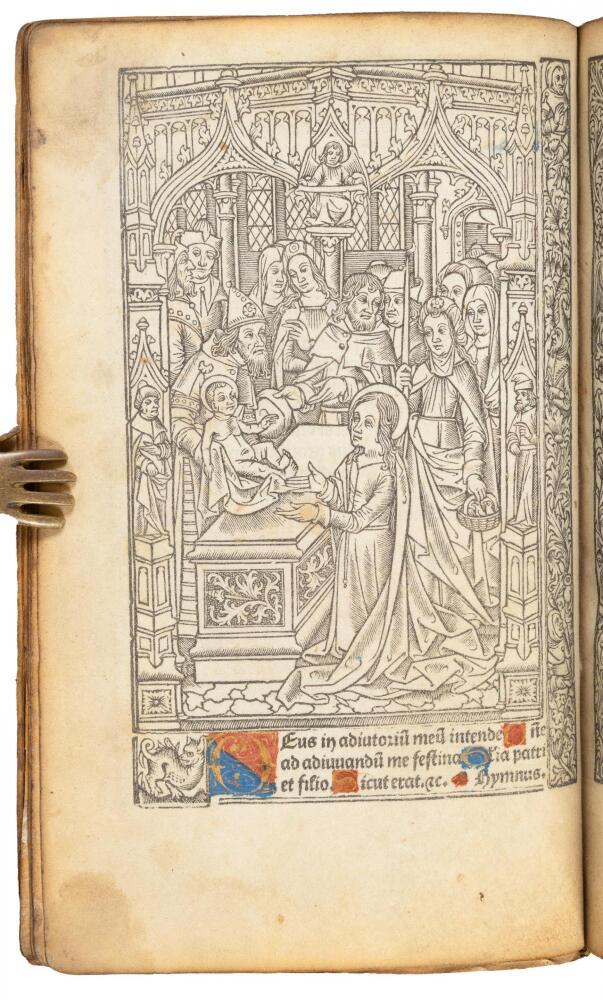 Deus in adiutoriū meū intende Dñe
ad adiuuandū me festina Glia patri
et filio. Sicut erat. ꝛc. Hymnus.